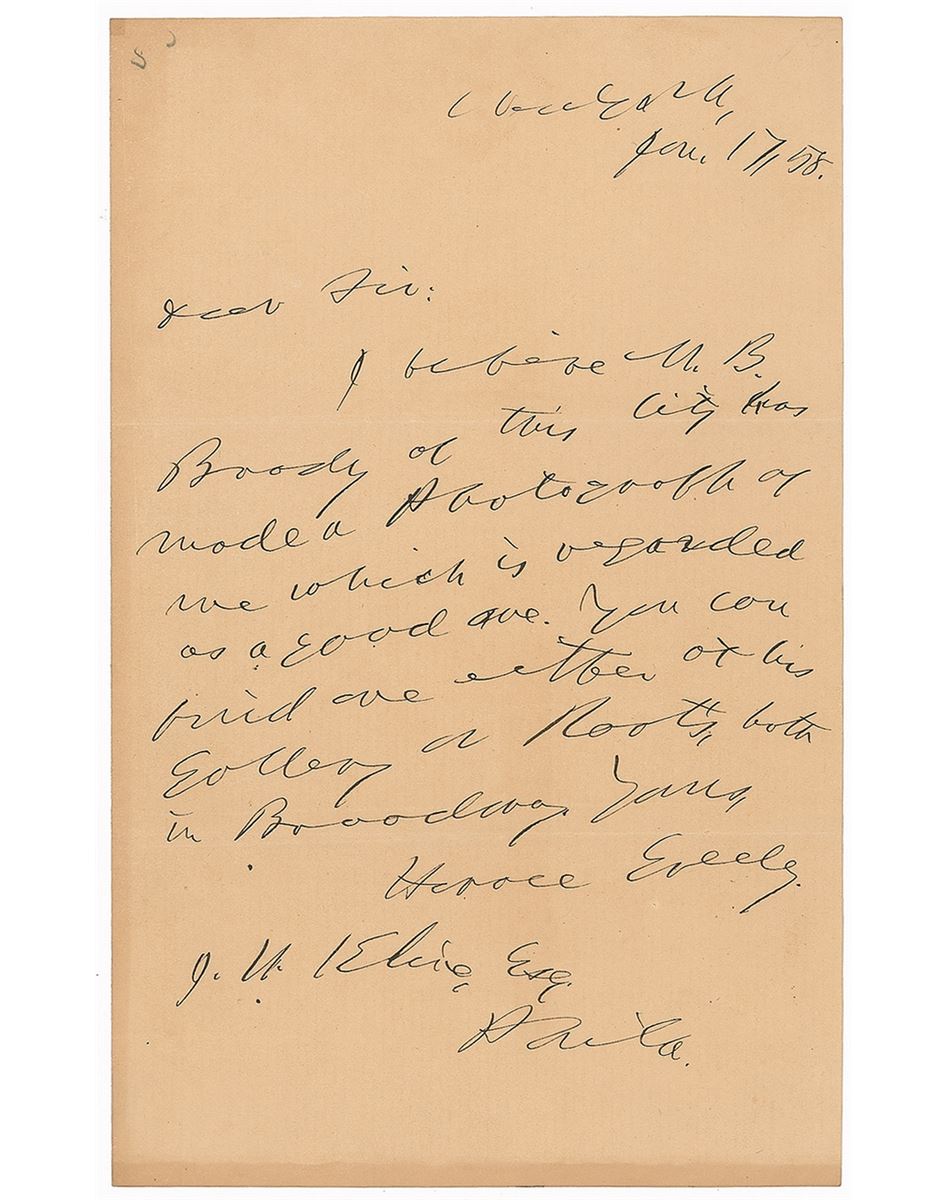 New York,
Jan. 17, '58.
Dear Sir:
I believe M. B.
Brady of this City has
made a Photograph of
me which is regarded
as a good one. You can
find one either at his
Gallery or Root's, both
in Broadway. Yours,
Horace Greeley.
J. H. Kline, Esq.
Phila.